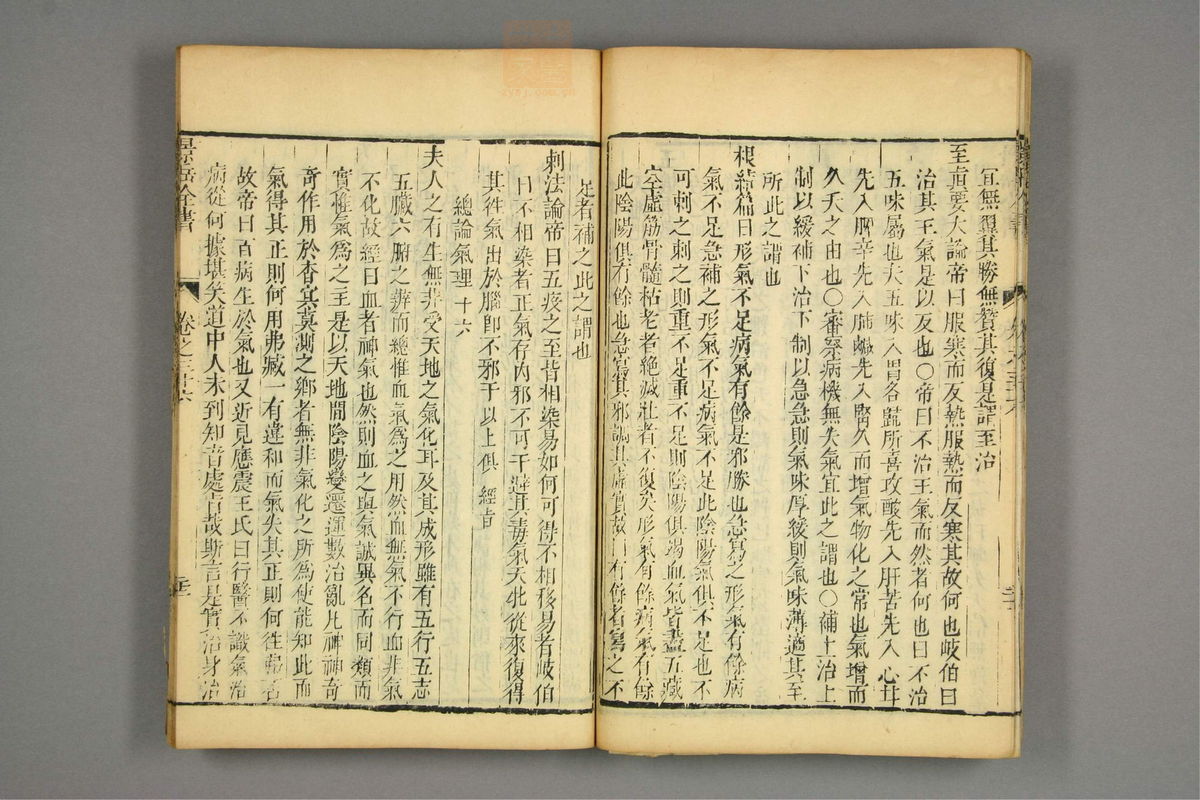 宜無翼其勝無贊其復是謂至治
至眞要大論帝曰服寒而反熱服熱而反寒其故何也岐伯曰
治其王氣是以反也○帝曰不治王氣而然者何也曰不治
五味屬也夫五味入胃各歸所喜攻酸先入肝苦先入心甘
先入脾辛先入肺鹹先入腎久而增氣物化之常也氣增而
久夭之由也○審察病機無失氣宜此之謂也○補上治上
制以緩補下治下制以急急則氣味厚緩則氣味薄適其至
所此之謂也
根結篇曰形氣不足病氣有餘是邪勝也急瀉之形氣有餘病
氣不足急補之形氣不足病氣不足此陰陽氣俱不足也不
可刺之刺之則重不足重不足則陰陽俱竭血氣皆盡五藏
空虛筋骨髓枯老者絶滅壯者不復矣形氣有餘病氣有餘
此陰陽俱有餘也急瀉其邪調其虛實故曰有餘者瀉之不
足者補之此之謂也
刺法論帝曰五疫之至皆相染易如何可得不相移易者岐伯
曰不相染者正氣存内邪不可干避其毒氣天牝從來復得
其徃氣出於腦卽不邪干以上俱 經旨
總論氣理 十六
夫人之有生無非受天地之氣化耳及其成形雖有五行五志
五臟六腑之辨而總惟血氣爲之用然血無氣不行血非氣
不化故經曰血者神氣也然則血之與氣誠異名而同類而
實惟氣爲之主是以天地間陰陽變遷運數治亂凡神神奇
奇作用於杳冥莫測之鄉者無非氣化之所爲使能知此而
氣得其正則何用弗臧一有違和而氣失其正則何徃弗否
故帝曰百病生於氣也又近見應震王氏曰行醫不識氣治
病從何據堪笑道中人未到知音處旨哉斯言是實治身治
卷之三十六